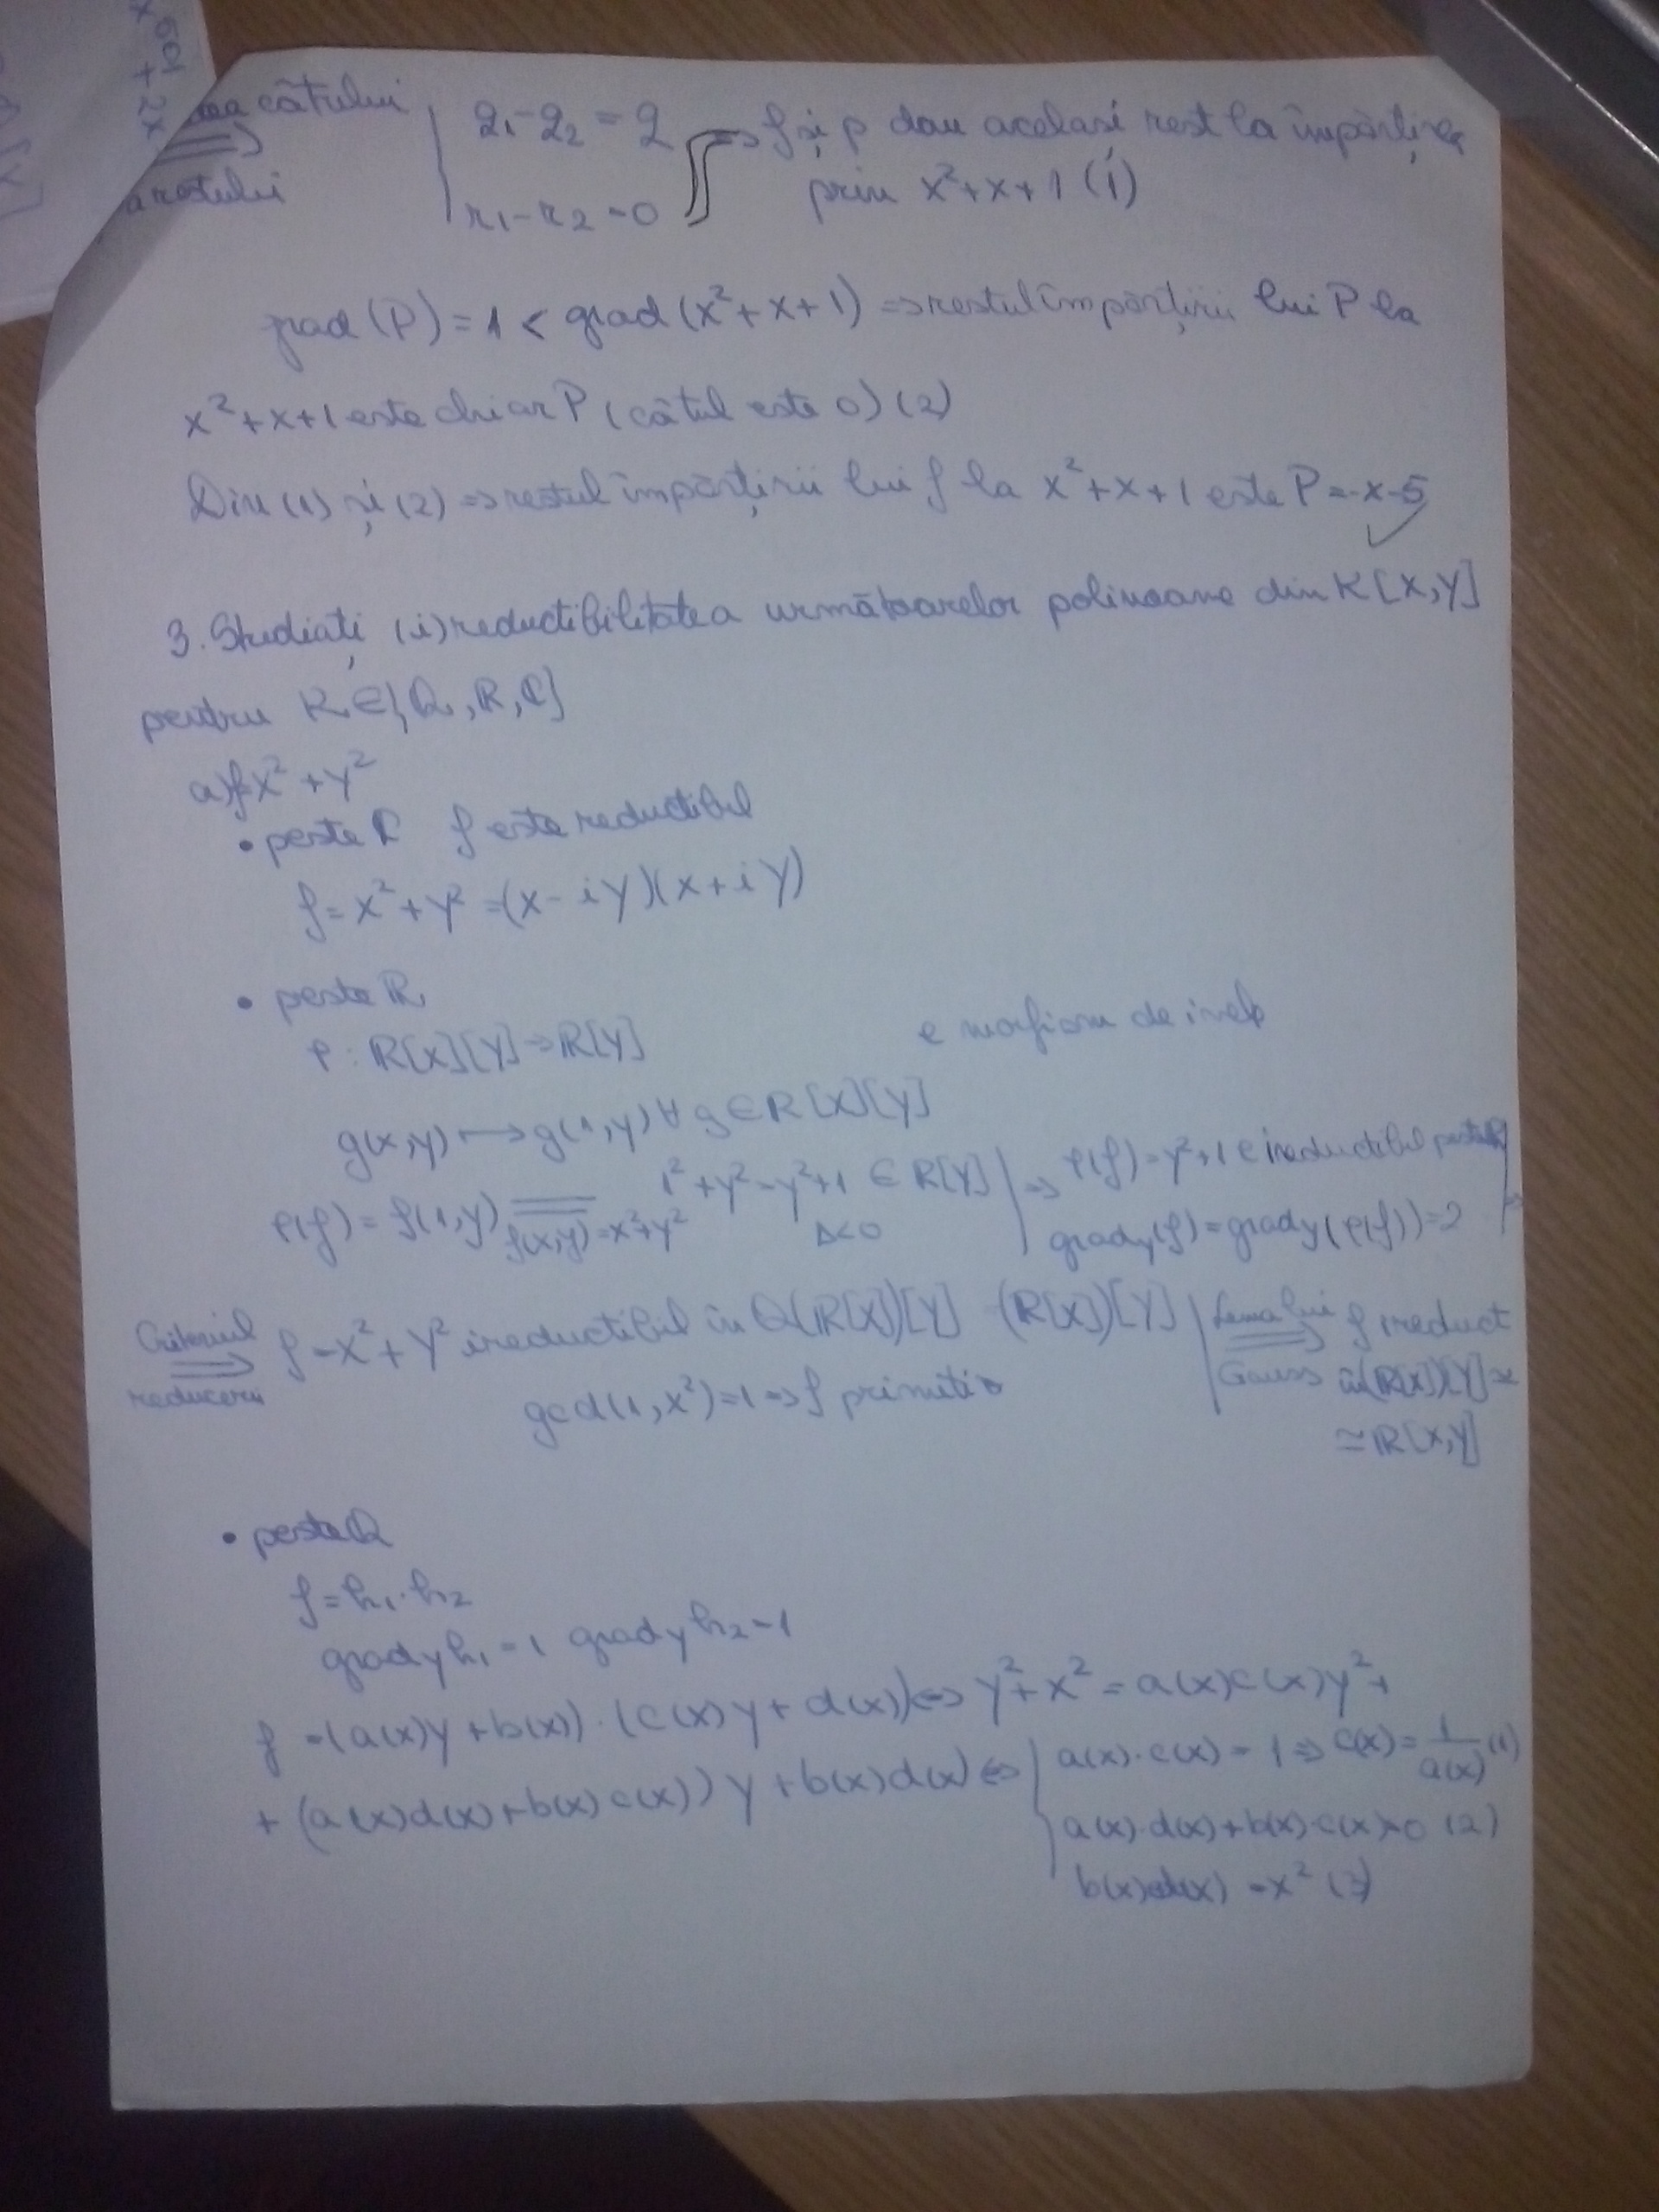 x^601 + 2x
câtului
restului
q₁-q₂ = q
r₁-r₂ = 0
=> f și p dau același rest la împărțirea
prin x²+x+1 (1)
grad (P) = 1 < grad (x²+x+1) => restul împărțirii lui P la
x²+x+1 este chiar P (câtul este 0) (2)
Din (1) și (2) => restul împărțirii lui f la x²+x+1 este P=-x-5
3. Studiați (i)reductibilitatea următoarelor polinoame din K[X,Y]
pentru K∈{Q,R,C}
a) f=x²+y²
• peste C f este reductibil
f=x²+y²=(x-iy)(x+iy)
• peste R
φ: R[X][Y]→R[Y] e morfism de inele
g(x,y)⟼g(1,y) ∀ g∈R[X][Y]
φ(f) = f(1,y) = 1²+y²=y²+1 ∈ R[Y] | => φ(f)=y²+1 e ireductibil peste R
f(x,y)=x²+y² Δ<0 grad_y(f)=grad_y(φ(f))=2 | =>
Criteriul reducerii => f=x²+y² ireductibil în Q(R[X])[Y] (R[X])[Y] | Lema lui Gauss => f ireduct
gcd(1,x²)=1=>f primitiv în(R[X])[Y]≃
≃R[X,Y]
• peste Q
f=h₁·h₂
grad_y h₁=1 grad_y h₂=1
f=(a(x)y+b(x))·(c(x)y+d(x))<=> y²+x²=a(x)c(x)y²+
+(a(x)d(x)+b(x)c(x))y+b(x)d(x) <=> { a(x)·c(x)=1=> c(x)=1/a(x) (1)
a(x)·d(x)+b(x)·c(x)=0 (2)
b(x)d(x)=x² (3)